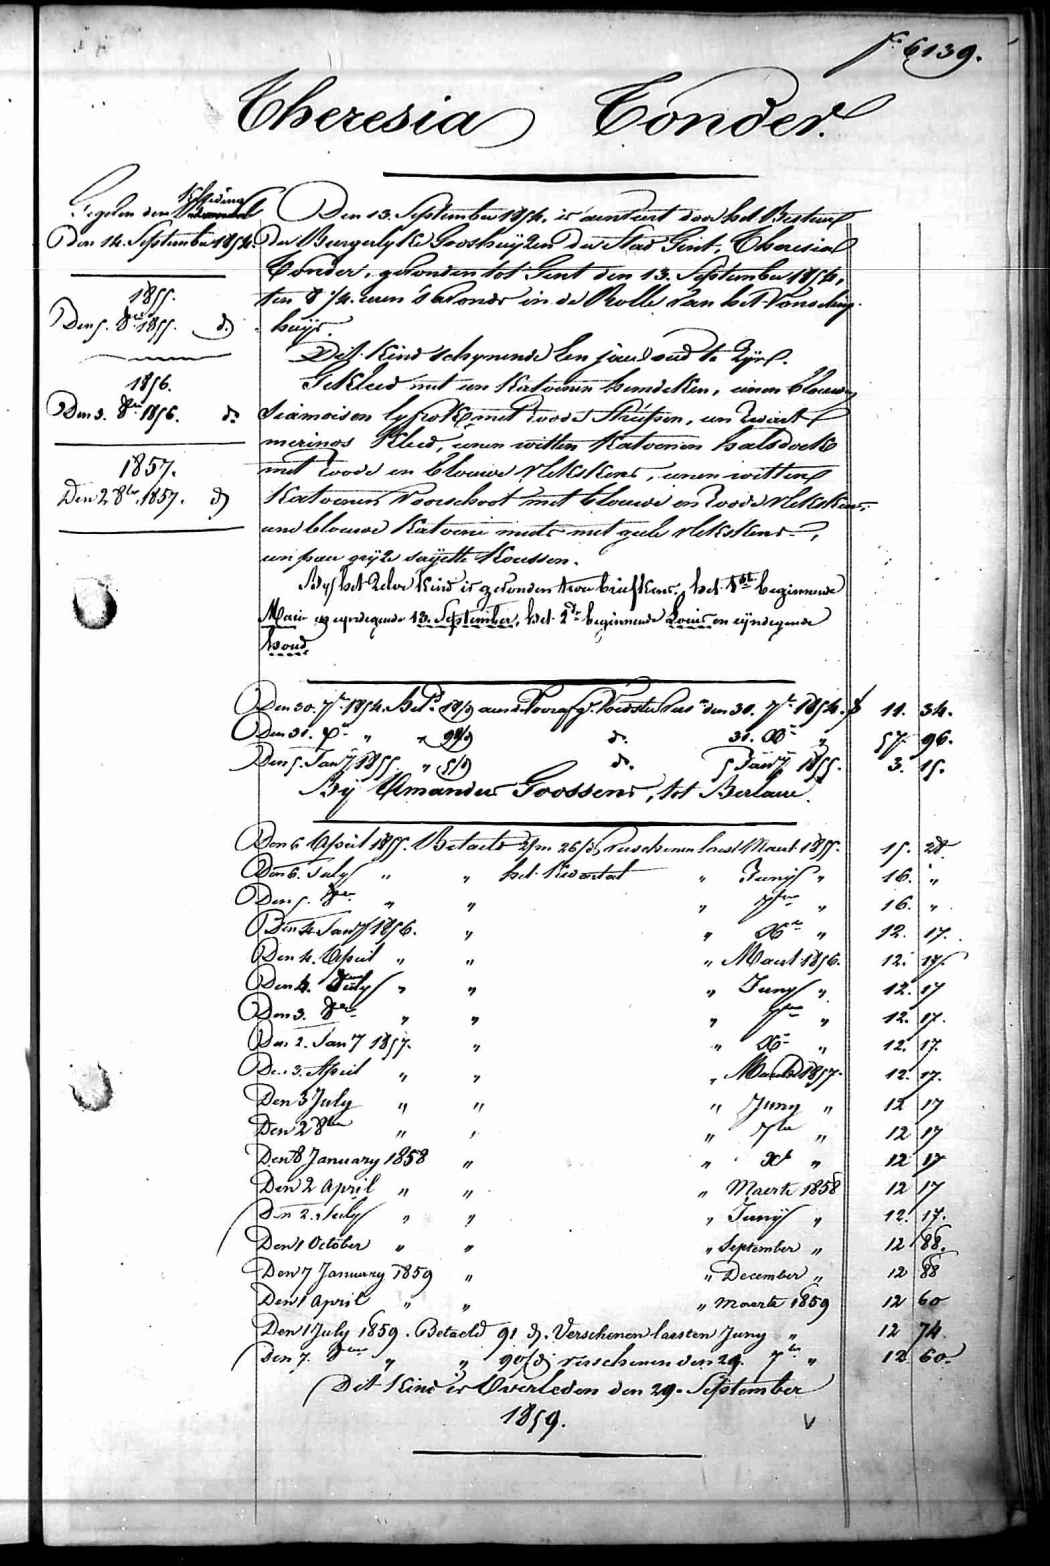 f.° 6139.
Theresia Tonder.
Gegeven den
Den 14. September 1854.
1855.
Den 5. 8bre 1855. d°
1856.
Den 3. 8bre 1856. d°
1857.
Den 2 8bre 1857. d°
Den 13. September 1854, is aenveirt door het Bestuer
der Burgerlyke Godshuyzen der Stad Gent, Theresia
Tonder, gevonden tot Gent den 13. September 1854,
ten 8 1/4 uren 's avonds in de Rolle van het Vondeling
huys.
Dit Kind schynende een jaer oud te zyn.
Gekleed met een Katoenen hemdeken, eenen blauwen
siamoisen lyfrok met roode Streépen, een zwart
merinos Kleed, eenen witten Katoenen halsdoek
met roode en blauwe vlekskens, eenen witten
Katoenen Voorschoot met blauwe en roode vlekskens,
eene blauwe Katoene muts met geele vlekskens,
een paer gryze sayette Koussen.
By het zelve Kind is gevonden twee briefkens, het 1ste beginnende
Marie en eyndegende 13. September, het 2de beginnende Louis en eyndegende
Den 30. 7bre 1854. Bet. 18/d aen den Voorafg. Voedster Vers. den 30. 7bre 1854. f 11. 34.
Den 31. Xbre " " 92/d d° 31. Xbre " 57. 96.
Den 5. Jany 1855 " 5/d d° 5 Jany 1855. 3. 15.
By Amandus Goossens, tot Berlaere.
Den 6 April 1855. Betaeld 2/m 26/d, verschenen laest Maert 1855. 15. 28.
Den 6. July " " het Kwartael " Juny " 16. "
Den 5. 8bre " " " 7bre " 16. "
Den 4 Jany 1856. " " Xbre " 12. 17.
Den 4. April " " " Maert 1856. 12. 17.
Den 4. July " " " Juny " 12. 17
Den 3. 8bre " " " 7bre " 12. 17.
Den 2. Jany 1857. " " Xbre " 12. 17.
Den 3. April " " " Maert 1857. 12. 17.
Den 3 July " " " Juny " 12 17
Den 2 8bre " " " 7bre " 12 17
Den 8 January 1858 " " Xb " 12 17
Den 2 April " " " Maerte 1858 12 17
Den 2. July " " " Juny " 12. 17.
Den 1 October " " " September " 12 88.
Den 7 January 1859 " " December " 12 88
Den 1 April " " " Maerte 1859 12 60
Den 1 July 1859. Betaeld 91 d. Verschenen laesten Juny " 12 74.
Den 7. 8bre " " 90/d verschenen den 29. 7bre " 12 60.
Dit Kind is Overleden den 29. September
1859.
V